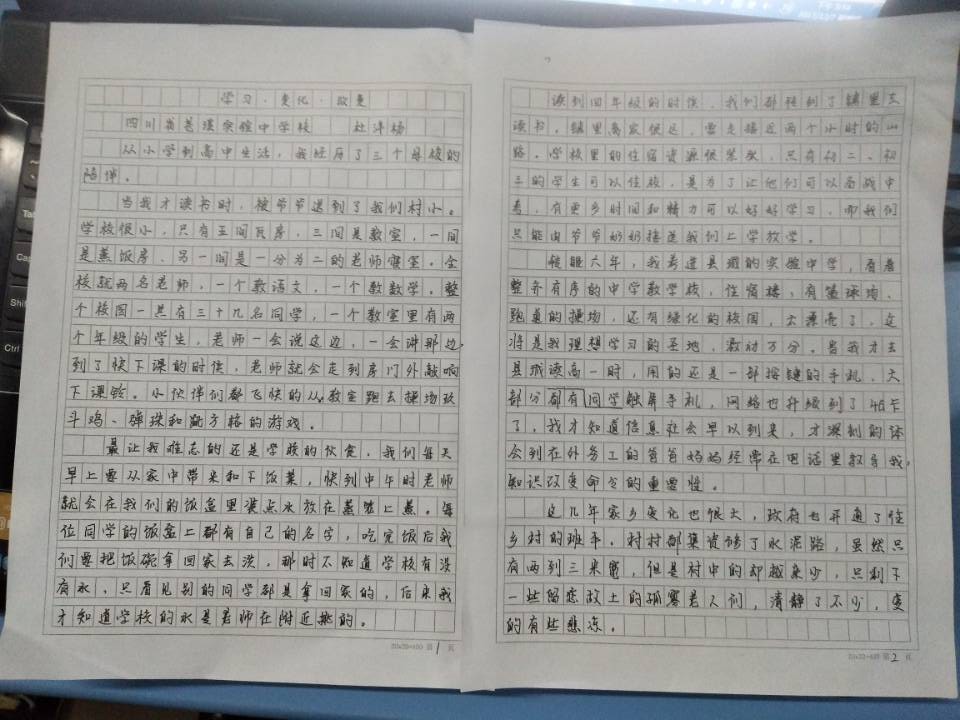 学习·变化·改变
四川省苍溪实验中学校 杜泽杨
从小学到高中生活，我经历了三个母校的
陪伴。
当我才读书时，被爷爷送到了我们村小。
学校很小，只有五间瓦房，三间是教室，一间
是蒸饭房，另一间是一分为二的老师寝室。全
校就两名老师，一个教语文，一个教数学。整
个校园一共有三十几名同学，一个教室里有两
个年级的学生，老师一会说这边，一会讲那边，
到了快下课的时侯，老师就会走到房门外敲响
下课铃。小伙伴们都飞快的从教室跑去操场玩
斗鸡、弹珠和跳方格的游戏。
最让我难忘的还是学校的伙食，我们每天
早上要从家中带米和下饭菜，快到中午时老师
就会在我们的饭盒里装点水放在蒸笼上蒸。每
位同学的饭盒上都有自己的名字，吃完饭后我
们要把饭碗拿回家去洗，那时不知道学校有没
有水，只看见别的同学都是拿回家的，后来我
才知道学校的水是老师在附近挑的。
20x20=400 第 1 页
读到四年级的时侯，我们都转到了镇里去
读书。镇里离家很远，要走接近两个小时的山
路。学校里的住宿资源很紧张，只有初二、初
三的学生可以住校，是为了让他们可以备战中
考，有更多时间和精力可以好好学习，而我们
只能由爷爷奶奶接送我们上学放学。
转眼六年，我考进县城的实验中学，看着
整齐有序的中学教学楼，住宿楼，有篮球场、
跑道的操场，还有绿化的校园，太漂亮了，这
将是我理想学习的圣地，激动万分，当我才去
县城读高一时，用的还是一部按键的手机，大
部分都有同学触屏手机，网络也升级到了4G卡
了，我才知道信息社会早以到来，才深刻的体
会到在外务工的爸爸妈妈经常在电话里教导我，
知识改变命运的重要性。
这几年家乡变化也很大，政府也开通了往
乡村的班车，村村都集资修了水泥路，虽然只
有两到三米宽，但是村中的却越来少，只剩下
一些留恋故土的孤寡老人们，清静了不少，变
的有些悲凉。
20x20=400 第 2 页